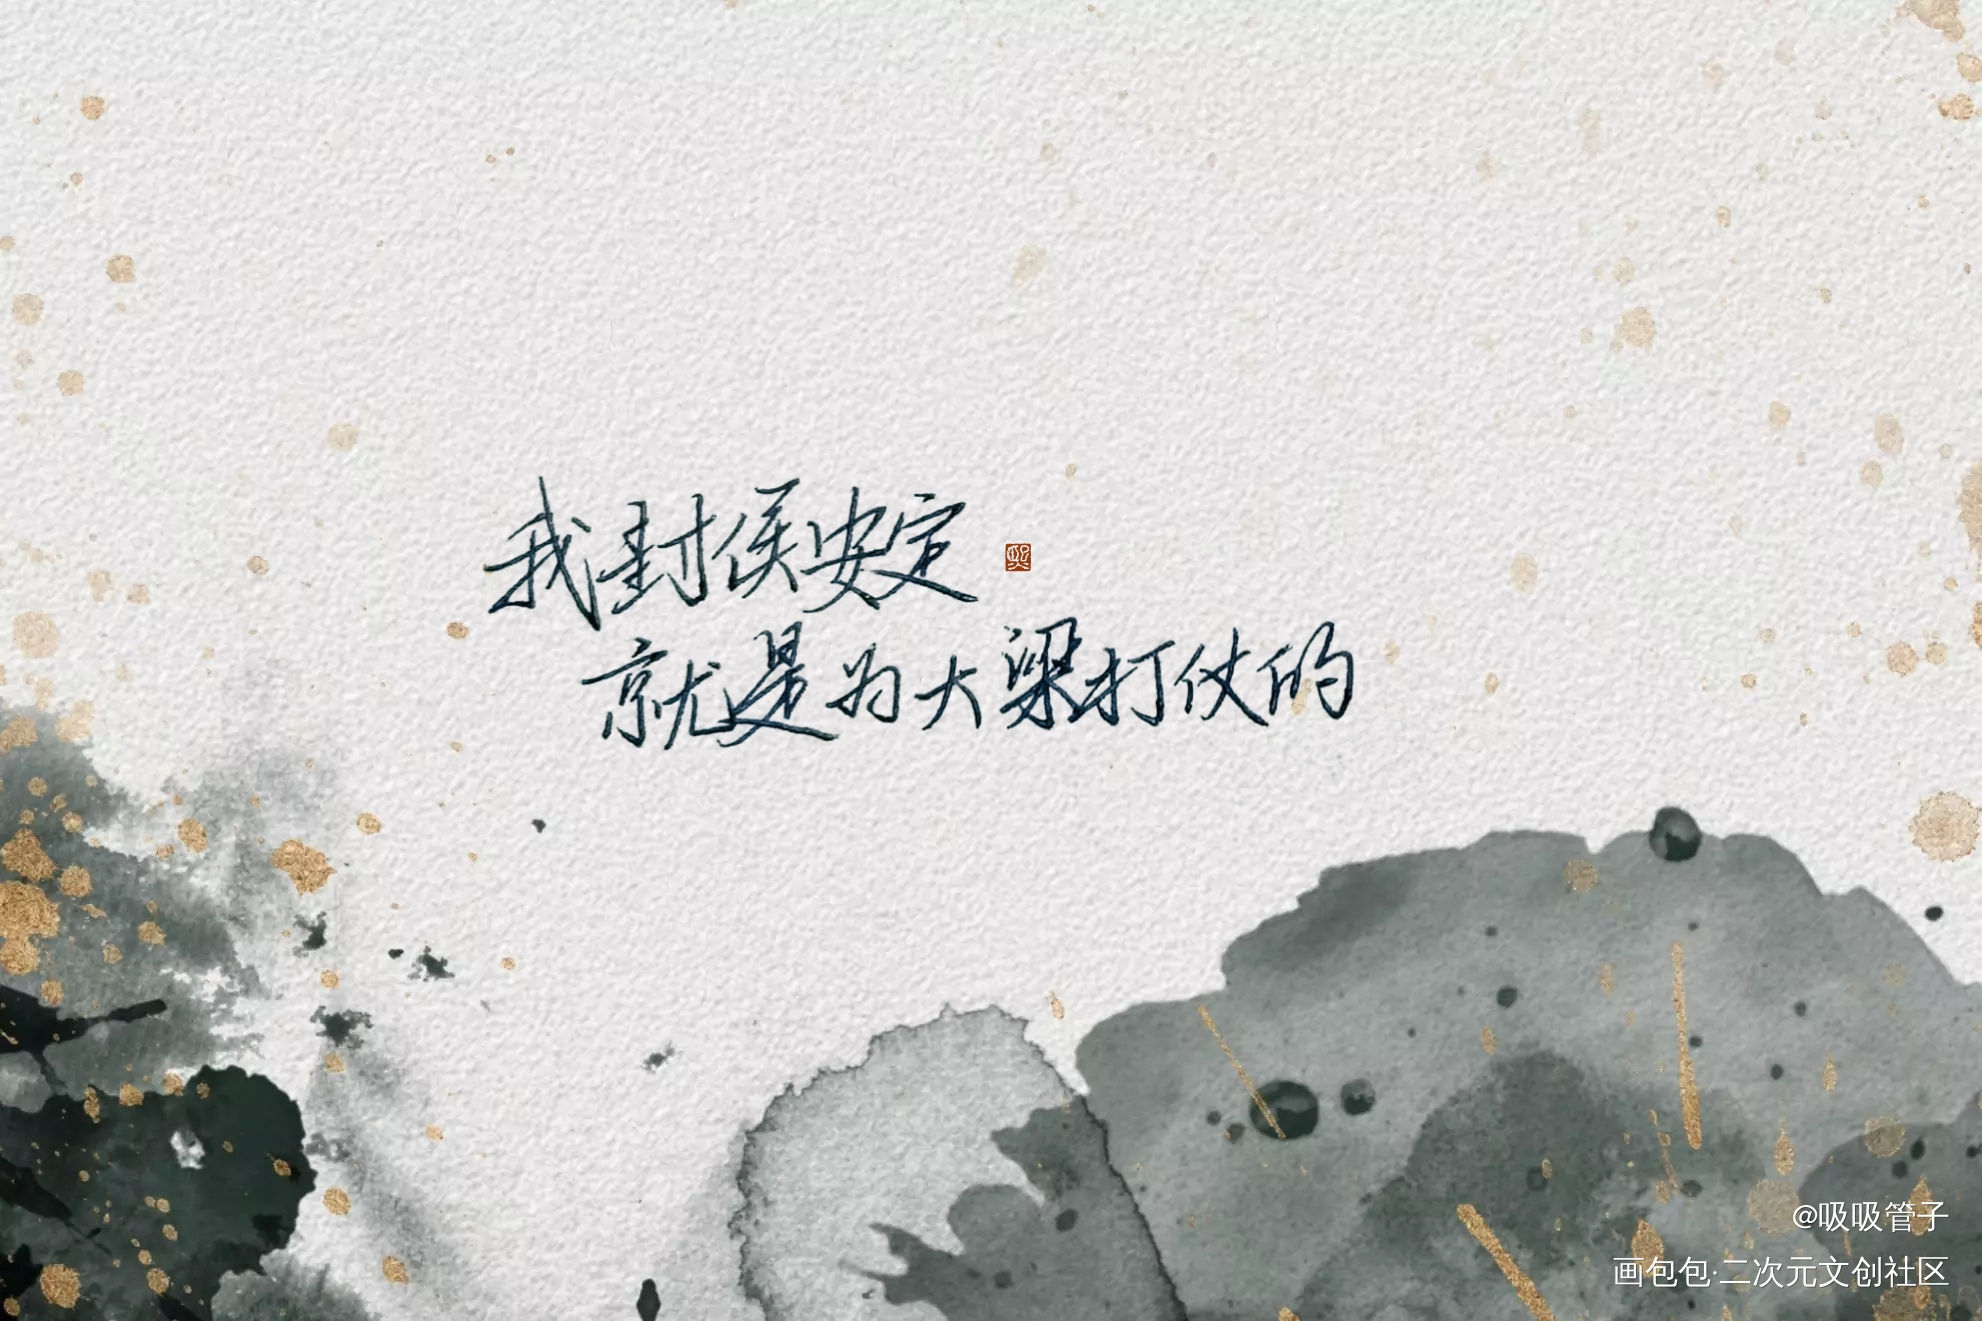 我封侯安定
熙
就是为大梁打仗的
@吸吸管子
画包包·二次元文创社区